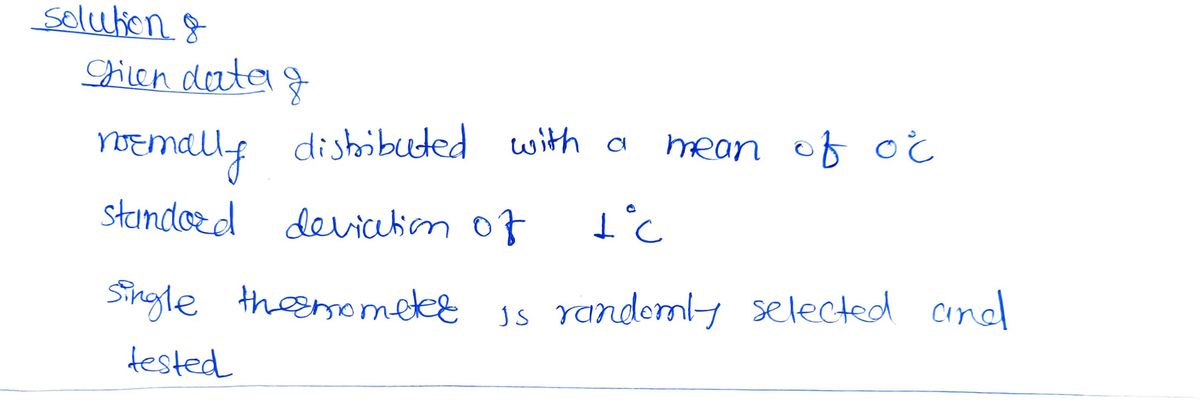 Solution :
Given data :
normally distributed with a mean of 0°C
standard deviation of 1°C
single thermometer is randomly selected and
tested